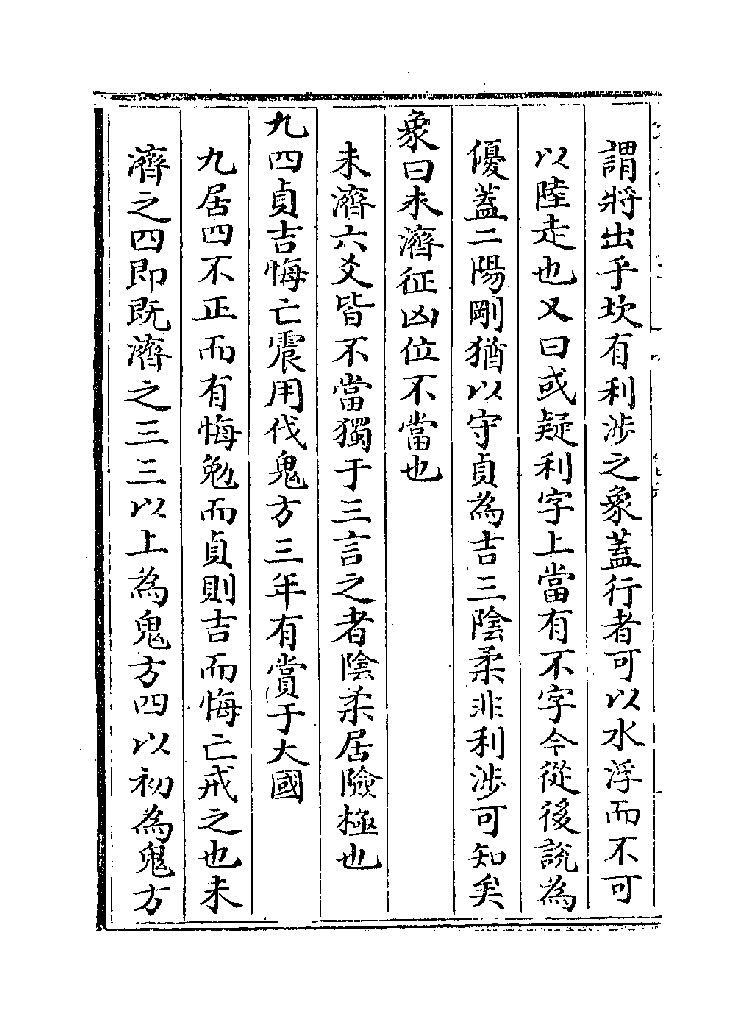 謂將出乎坎有利涉之象蓋行者可以水浮而不可
以陸走也又曰或疑利字上當有不字今從後說為
優蓋二陽剛猶以守貞為吉三陰柔非利涉可知矣
象曰未濟征凶位不當也
未濟六爻皆不當獨于三言之者陰柔居險極也
九四貞吉悔亡震用伐鬼方三年有賞于大國
九居四不正而有悔勉而貞則吉而悔亡戒之也未
濟之四即既濟之三三以上為鬼方四以初為鬼方